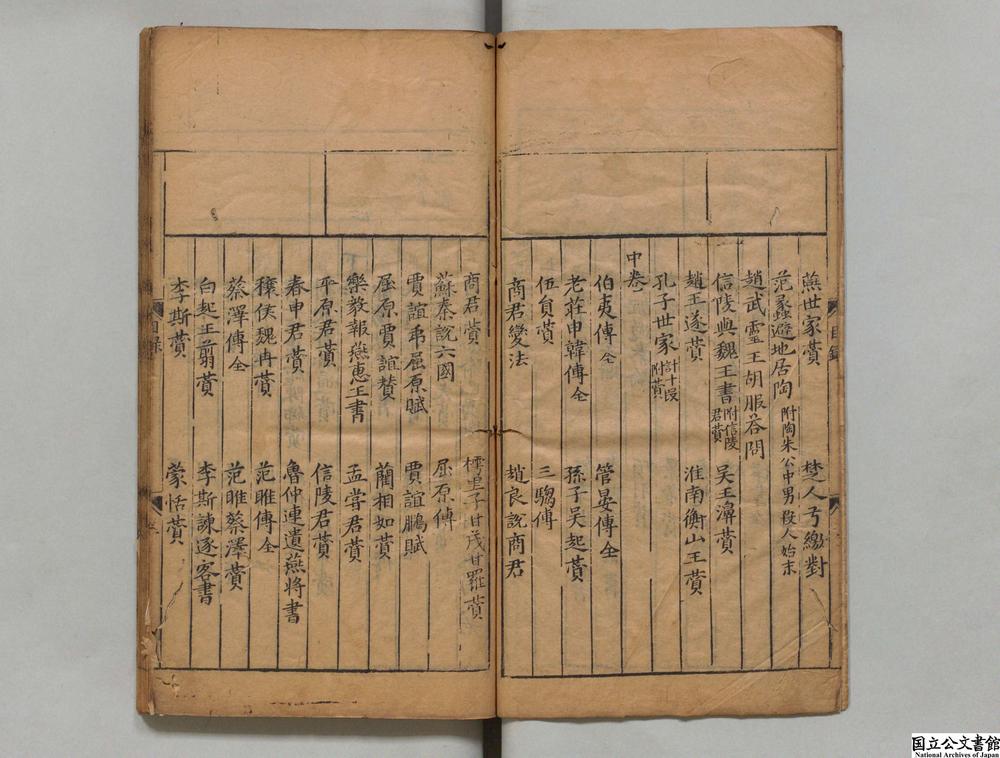 燕世家賛　楚人弓繳對
范蠡避地居陶 附陶朱公中男殺人始末
趙武靈王胡服荅問
信陵與魏王書 附信陵君賛　吳王濞賛
趙王遂賛　淮南衡山王賛
孔子世家 計十段附賛
中卷
伯夷傳全　管晏傳全
老莊申韓傳全　孫子吳起賛
伍員賛　三騶傳
商君變法　趙良說商君
商君賛　樗里子甘茂甘羅賛
蘇秦說六國　屈原傳
賈誼弔屈原賦　賈誼鵬賦
屈原賈誼賛　藺相如賛
樂毅報燕惠王書　孟嘗君賛
平原君賛　信陵君賛
春申君賛　魯仲連遺燕將書
穰侯魏冉賛　范睢傳全
蔡澤傳全　范睢蔡澤賛
白起王翦賛　李斯諫逐客書
李斯賛　蒙恬賛
目錄
目錄
国立公文書館
National Archives of Japan